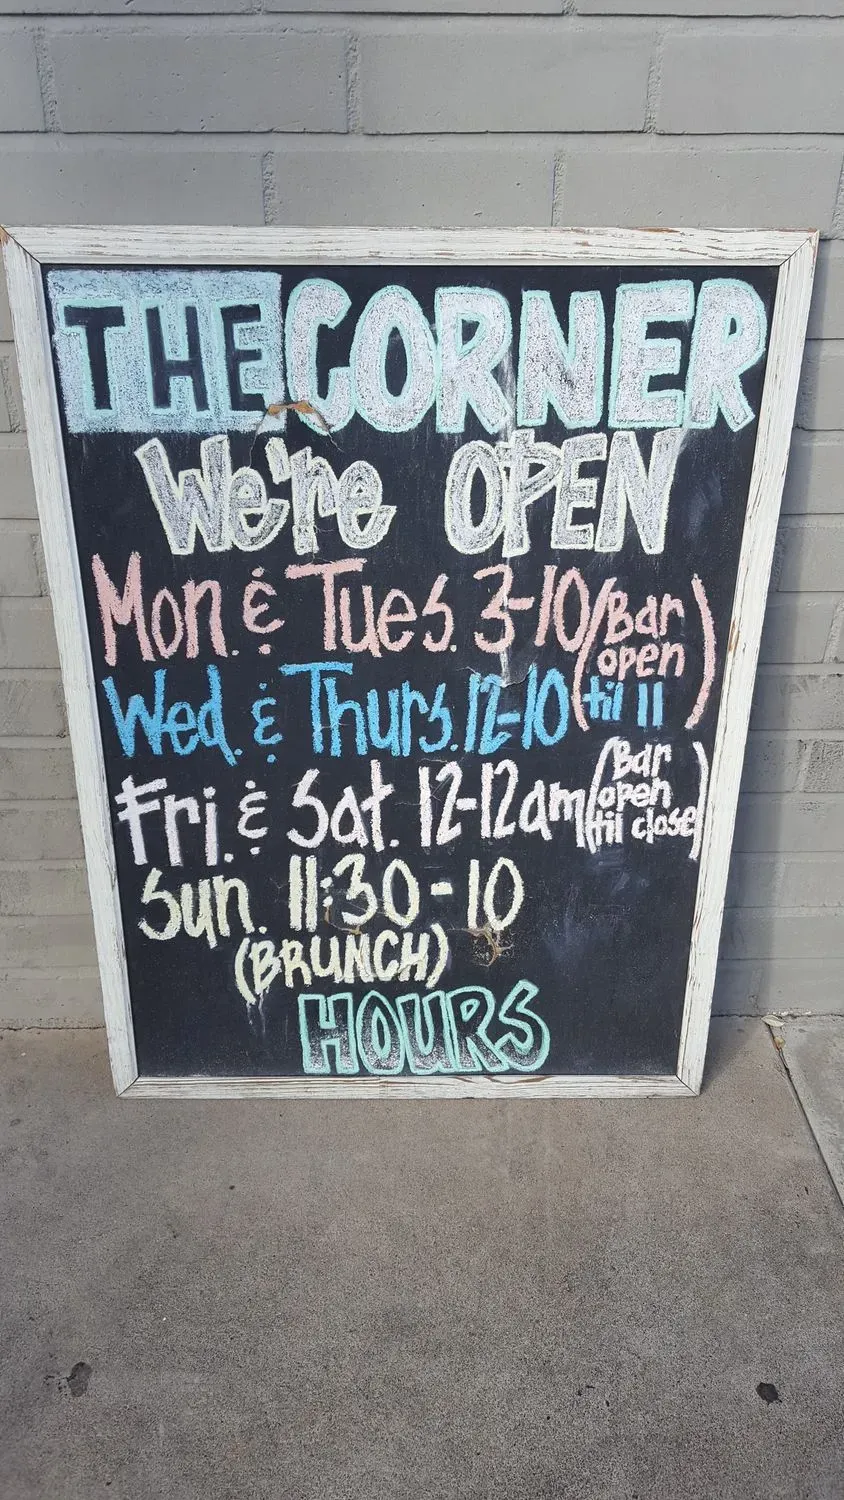 THE CORNER
We're OPEN
Mon. & Tues. 3-10 (Bar open til 11)
Wed. & Thurs. 12-10
Fri. & Sat. 12-12am (Bar open til close)
Sun. 11:30-10
(BRUNCH)
HOURS